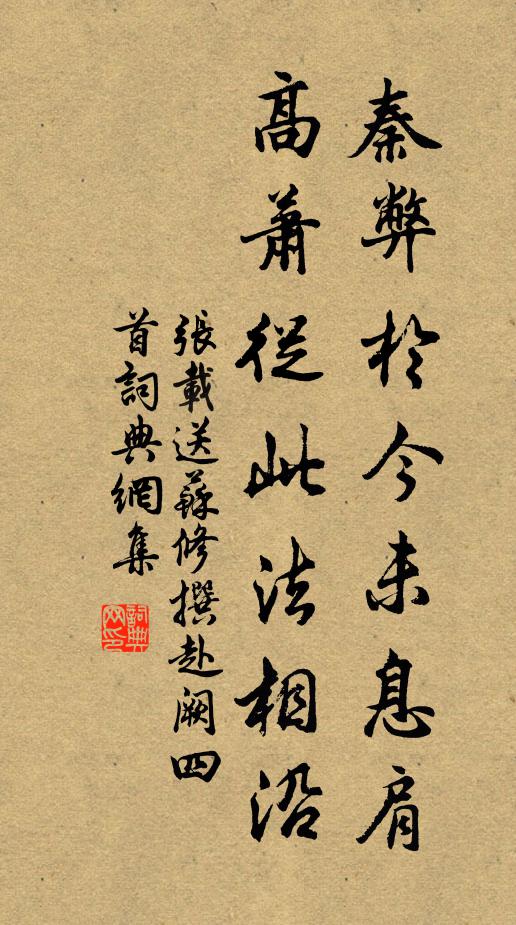 秦弊於今未息肩
高蕭從此法相沿
張載送蘇修撰赴闕四
首詞典網集
詞典
网印